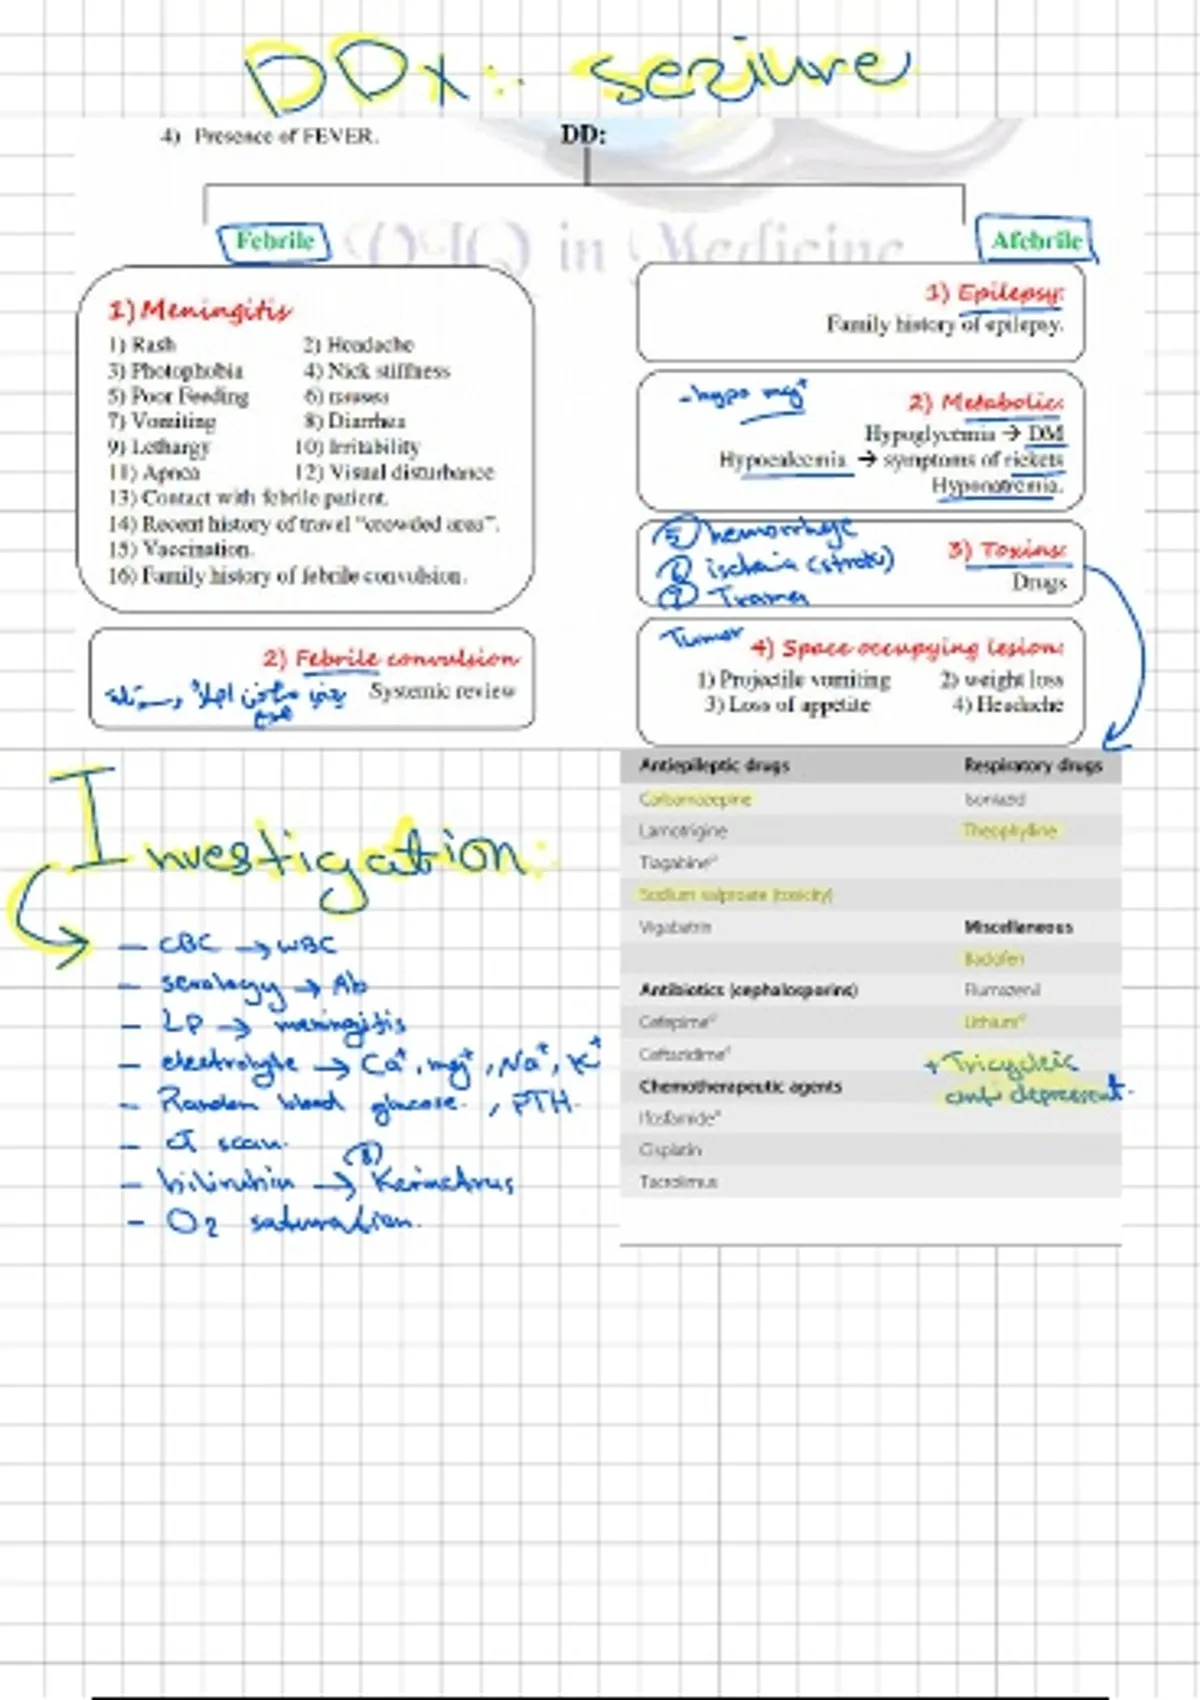 DDx: seziure
4) Presence of FEVER.
DD:
OTO in Medicine
Febrile
Afebrile
1) Meningitis
1) Rash 2) Headache
3) Photophobia 4) Nick stiffness
5) Poor Feeding 6) nausea
7) Vomiting 8) Diarrhea
9) Lethargy 10) Irritability
11) Apnea 12) Visual disturbance
13) Contact with febrile patient.
14) Recent history of travel “crowded area”.
15) Vaccination.
16) Family history of febrile convulsion.
2) Febrile convulsion
Systemic review
1) Epilepsy:
Family history of epilepsy.
- hypo mg+
2) Metabolic:
Hypoglycemia → DM
Hypocalcemia → symptoms of rickets
Hyponatremia.
5 hemorrhage
6 ischemia (stroke)
7 Trauma
3) Toxins:
Drugs
Tumor
4) Space occupying lesion:
1) Projectile vomiting 2) weight loss
3) Loss of appetite 4) Headache
Investigation:
- CBC → WBC
- serology → Ab
- LP → meningitis
- electrolyte → Ca+, mg+, Na+, K+
- Random blood glucose , PTH.
- CT scan.
- bilirubin → (8) Kernicterus
- O2 saturation.
Antiepileptic drugs Respiratory drugs
Carbamazepine Isoniazid
Lamotrigine Theophylline
Tiagabine
Sodium valproate (toxicity)
Vigabatrin Miscellaneous
Baclofen
Antibiotics (cephalosporins) Flumazenil
Cefepime Lithium
Ceftazidime + Tricycleic
Chemotherapeutic agents anti depressent.
Ifosfamide
Cisplatin
Tacrolimus